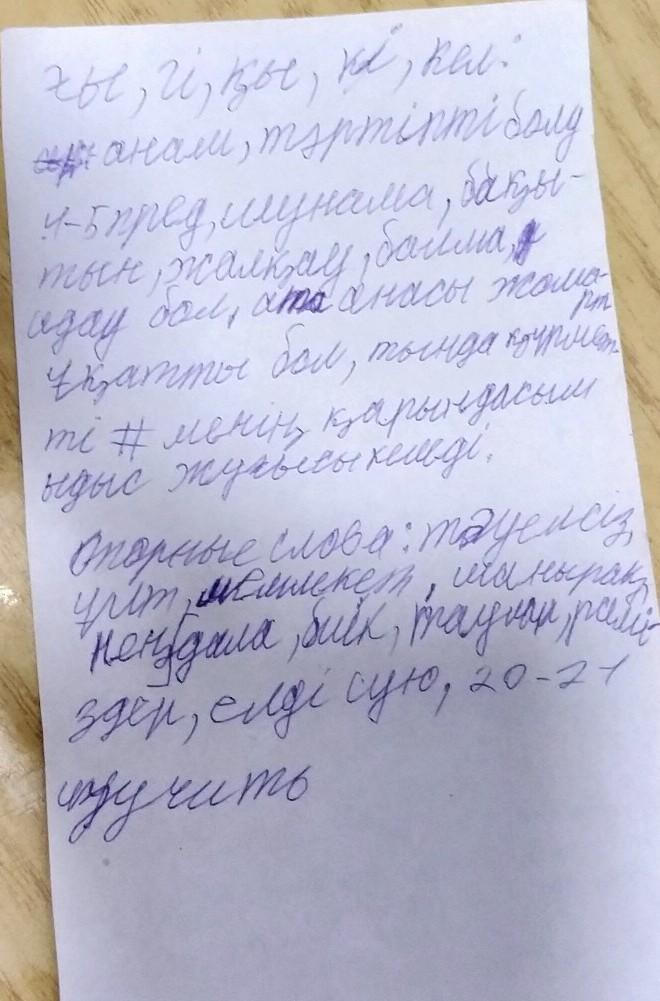 ғы, гі, қы, кі, кел:
анам, тәртіпті болу
4-5 пред, шунама, бақы-
тын, жалқау, балма,
адау бол, ата анасы жома-
рт
ұқатты бол, тында құрмет-
ті # менің қарындасым
ыдыс жуғысы келеді.
Опорные слова: тәуелсіз,
ұлт, мемлекет, шаңырақ,
кең дала, биік, таулар, рәмі-
здер, елді сую, 20-21
изучить